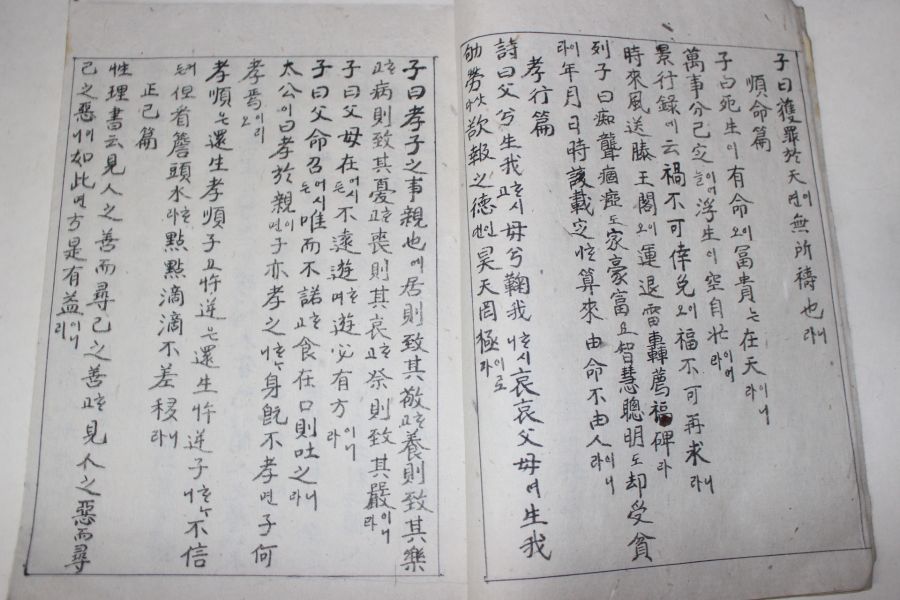 子曰獲罪於天이면無所禱也니라
順命篇
子曰死生이有命이오富貴는在天이니라
萬事分已定이어늘浮生이空自忙
景行錄에云禍不可倖免이오福不可再求니라
時來風送滕王閣이오運退雷轟薦福碑라
列子曰痴聾痼瘂도家豪富요智慧聰明도却受貧
이라年月日時該載定算來由命不由人이니라
孝行篇
詩曰父兮生我하시고母兮鞠我하시니哀哀父母여生我
劬勞欲報之德인昊天罔極이로라
子曰孝子之事親也에居則致其敬하고養則致其樂
하고病則致其憂하고喪則致其哀하고祭則致其嚴이니라
子曰父母在어시든不遠遊며遊必有方이니라
子曰父命召어시든唯而不諾하고食在口則吐之니라
太公이曰孝於親이면子亦孝之하나니身旣不孝면子何
孝焉이리오
孝順은還生孝順子요忤逆은還生忤逆子하나니不信
但看簷頭水하라點點滴滴不差移니라
正己篇
性理書云見人之善而尋己之善하고見人之惡而尋
己之惡이니如此면方是有益이니라